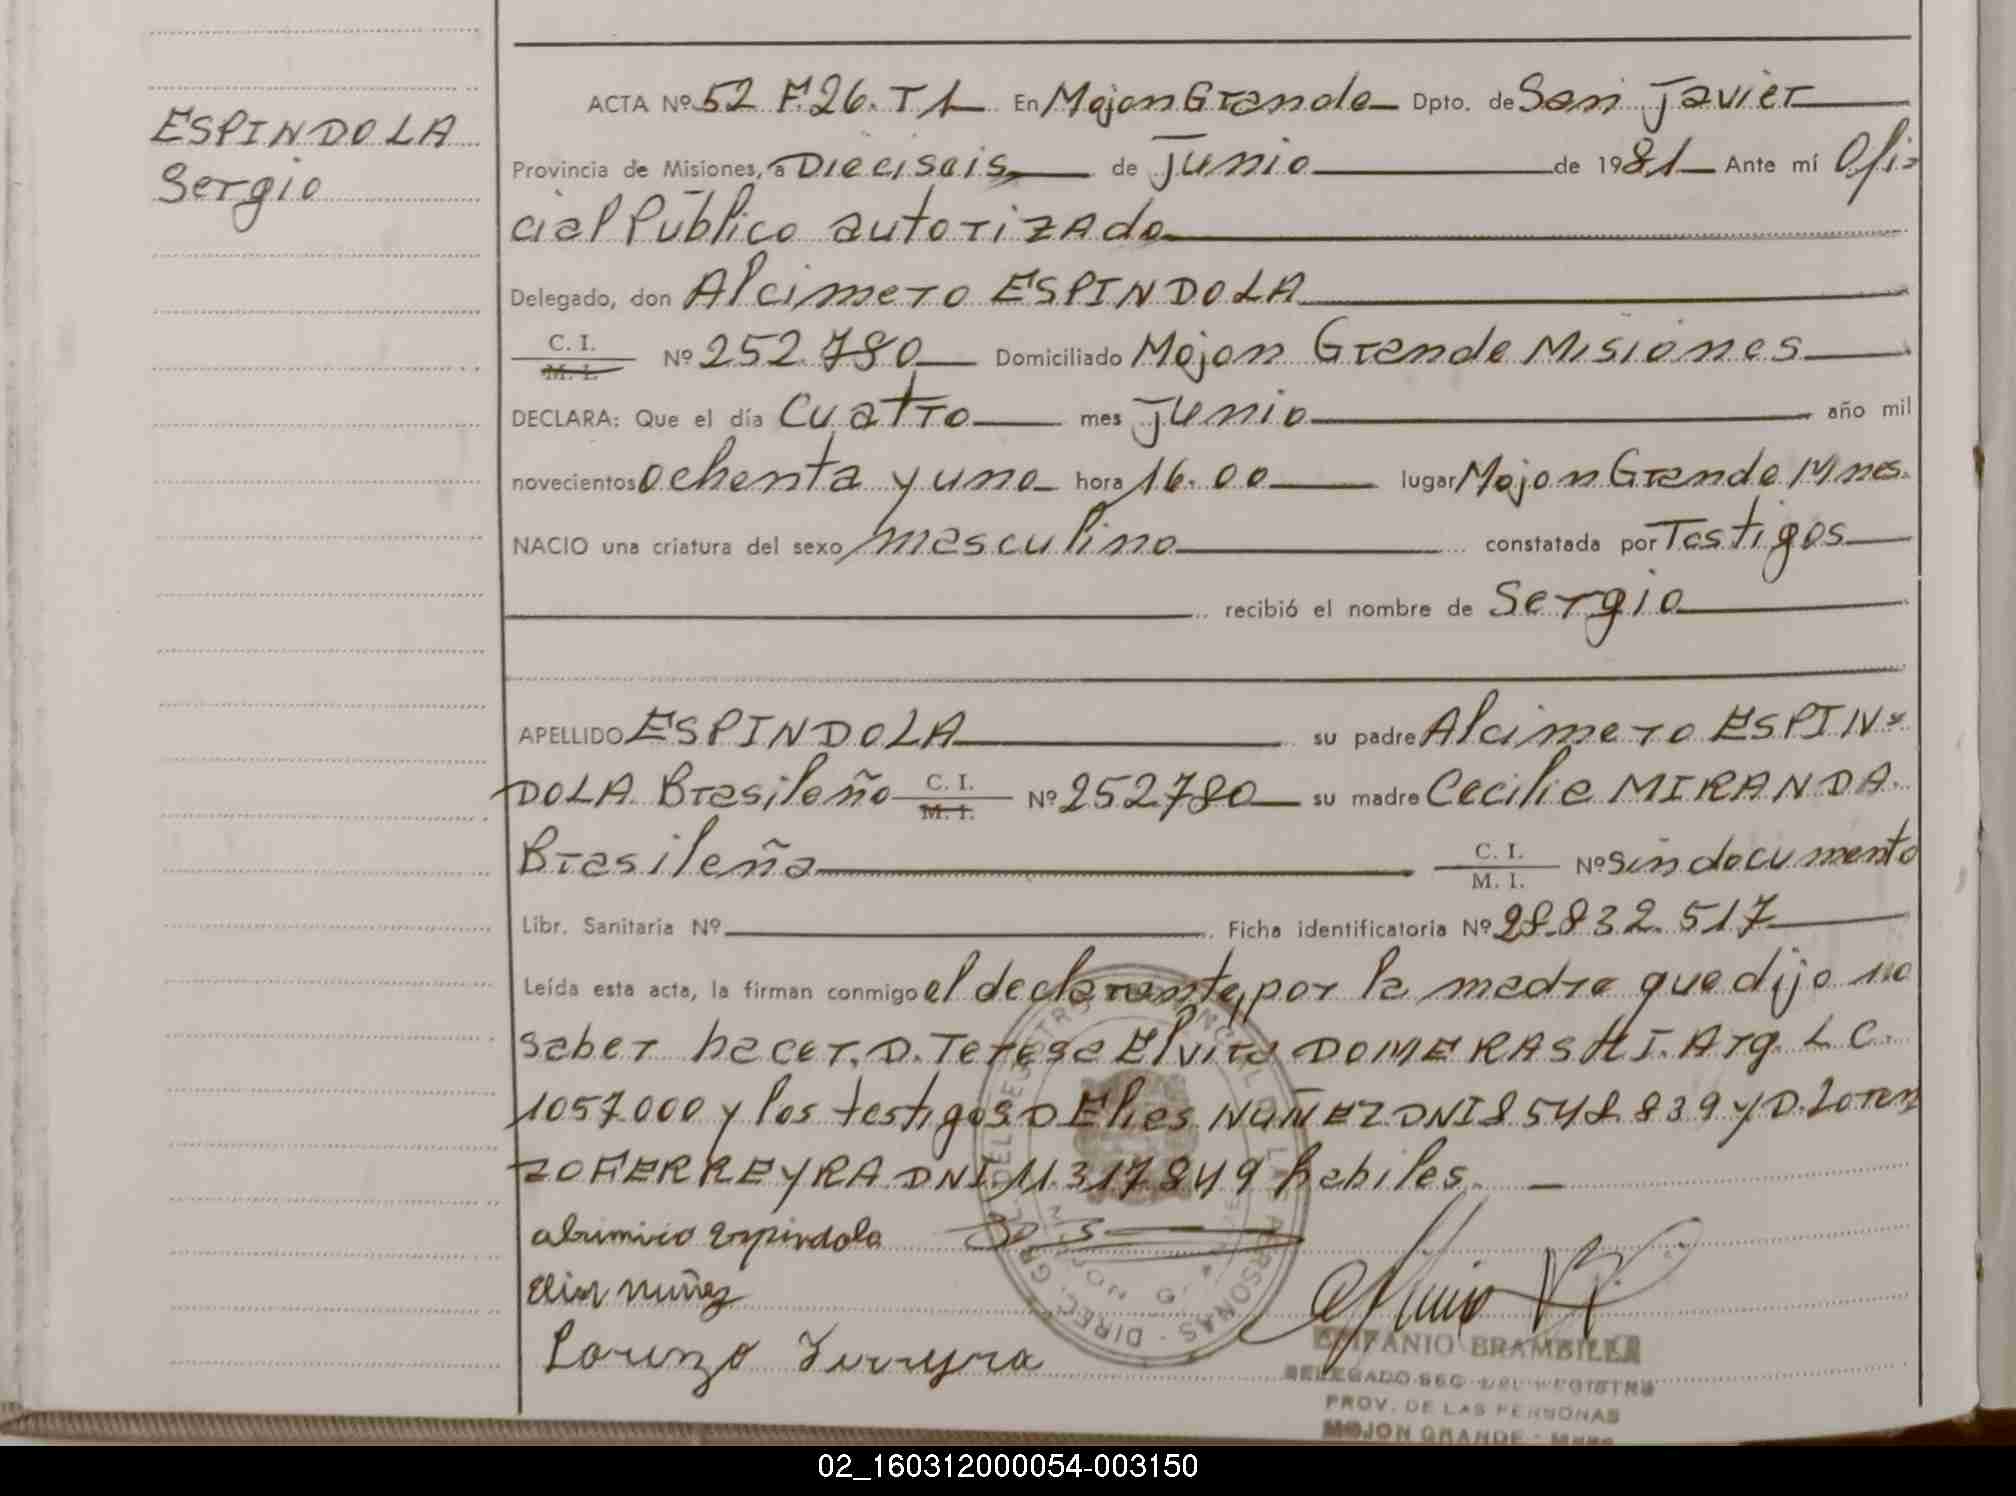 ESPINDOLA
Sergio
ACTA Nº 52 F.26. T 1 En Mojon Grande Dpto. de San Javier
Provincia de Misiones, a Dieciseis de Junio de 1981 Ante mí Ofi-
cial Público autorizado
Delegado, don Alcimero ESPINDOLA
C. I.
M. I.
Nº 252.780 Domiciliado Mojon Grande Misiones
DECLARA: Que el día Cuatro mes Junio año mil
novecientos ochenta y uno hora 16.00 lugar Mojon Grande Mnes.
NACIO una criatura del sexo masculino constatada por Testigos
recibió el nombre de Sergio
APELLIDO ESPINDOLA su padre Alcimero ESPIN-
DOLA Brasileño C. I. M. I. Nº 252780 su madre Cecilia MIRANDA.
Brasileña C. I. M. I. Nº sin documento
Libr. Sanitaria Nº Ficha identificatoria Nº 28.832.517
Leída esta acta, la firman conmigo el declarante, por la madre que dijo no
saber hacer, D. Teresa Elvira DOMERASKI. Arg. L C.
1057000 y los testigos D Elies NUÑEZ DNI 8548.839 y D. Loren
zo FERREYRA DNI 11.317849 habiles.
Espindola
Elias Nuñez
Lorenzo Ferreyra
EPIFANIO BRAMBILLA
DELEGADO SEC. DEL REGISTRO
PROV. DE LAS PERSONAS
MOJON GRANDE - Mnes
02_160312000054-003150